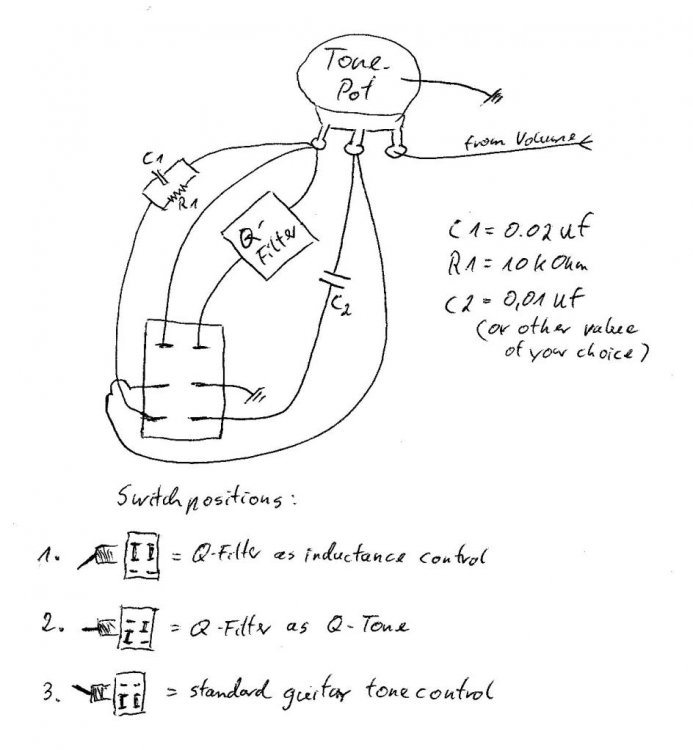 Tone-
Pot
from Volume
C1
R1
Q-
Filter
C2
C1 = 0.02 uf
R1 = 10 k Ohm
C2 = 0,01 uf
(or other value
of your choice)
Switchpositions:
1. = Q-Filter as inductance control
2. = Q-Filter as Q-Tone
3. = standard guitar tone control